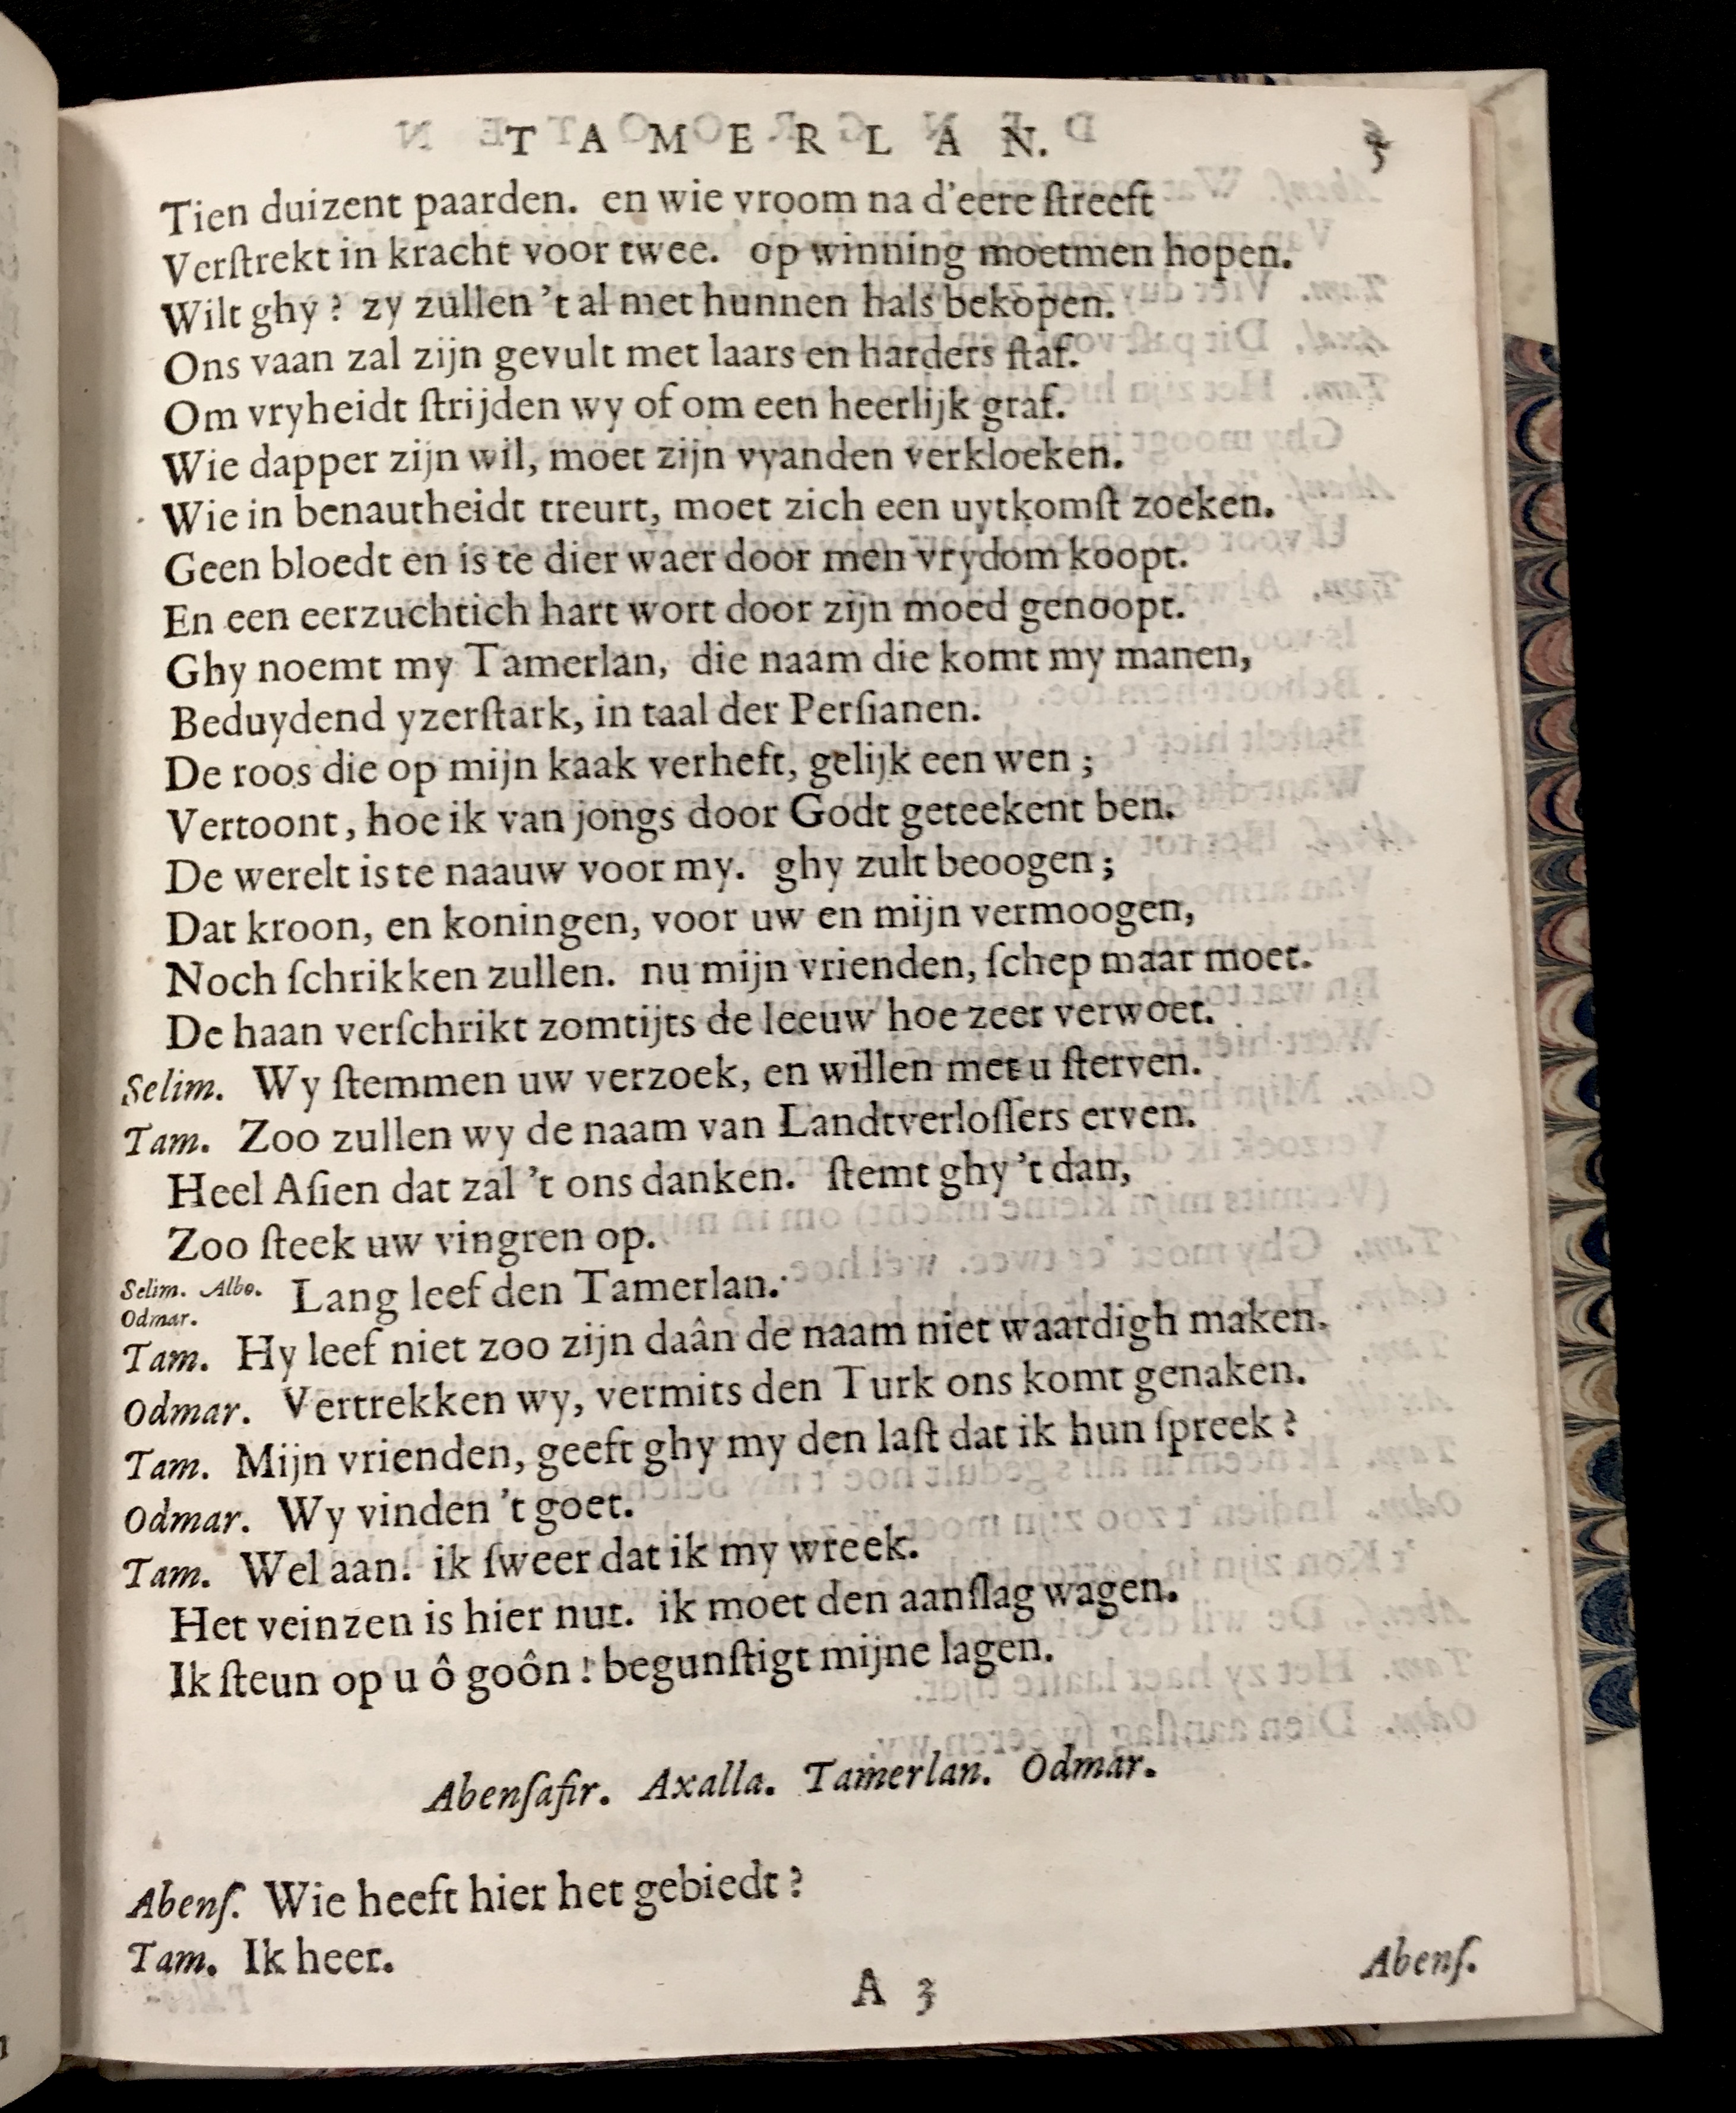 TAMERLAN.
Tien duizent paarden. en wie vroom na d'eere ſtreeft
Verſtrekt in kracht voor twee. op winning moetmen hopen.
Wilt ghy? zy zullen 't al met hunnen hals bekopen.
Ons vaan zal zijn gevult met laars en harders ſtaf.
Om vryheidt ſtrijden wy of om een heerlijk graf.
Wie dapper zijn wil, moet zijn vyanden verkloeken.
Wie in benautheidt treurt, moet zich een uytkomſt zoeken.
Geen bloedt en is te dier waer door men vrydom koopt.
En een eerzuchtich hart wort door zijn moed genoopt.
Ghy noemt my Tamerlan, die naam die komt my manen,
Beduydend yzerſtark, in taal der Perſianen.
De roos die op mijn kaak verheft, gelijk een wen;
Vertoont, hoe ik van jongs door Godt geteekent ben.
De werelt is te naauw voor my. ghy zult beoogen;
Dat kroon, en koningen, voor uw en mijn vermoogen,
Noch ſchrikken zullen. nu mijn vrienden, ſchep maar moet.
De haan verſchrikt zomtijts de leeuw hoe zeer verwoet.
Selim. Wy ſtemmen uw verzoek, en willen met u ſterven.
Tam. Zoo zullen wy de naam van Landtverloſſers erven.
Heel Aſien dat zal 't ons danken. ſtemt ghy 't dan,
Zoo ſteek uw vingren op.
Selim. Albo. Odmar. Lang leef den Tamerlan.
Tam. Hy leef niet zoo zijn daân de naam niet waardigh maken.
Odmar. Vertrekken wy, vermits den Turk ons komt genaken.
Tam. Mijn vrienden, geeft ghy my den laſt dat ik hun ſpreek?
Odmar. Wy vinden 't goet.
Tam. Wel aan! ik ſweer dat ik my wreek.
Het veinzen is hier nut. ik moet den aanſlag wagen.
Ik ſteun op u ô goôn! begunſtigt mijne lagen.
Abenſafir. Axalla. Tamerlan. Odmar.
Abenſ. Wie heeft hier het gebiedt?
Tam. Ik heer.
A 3
Abenſ.